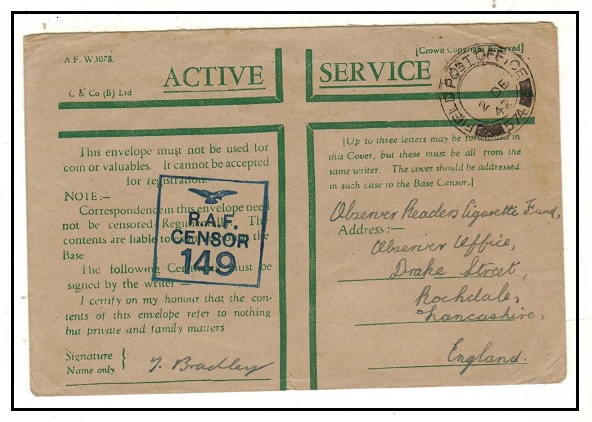 A.F. W3078.
[Crown Copyright Reserved]
C & Co (B) Ltd
ACTIVE SERVICE
FIELD POST OFFICE
2 DE
42
574
This envelope must not be used for
coin or valuables. It cannot be accepted
for registration.
NOTE:–
Correspondence in this envelope need
not be censored Regimentally. The
contents are liable to at the
Base.
The following must be
signed by the writer —
I certify on my honour that the con-
tents of this envelope refer to nothing
but private and family matters
Signature
Name only }
Bradley
R.A.F.
CENSOR
149
[Up to three letters may be forwarded in
this Cover, but these must be all from the
same writer. The cover should be addressed
in such case to the Base Censor.]
Address:–
Observer Readers Cigarette Fund,
Observer Office,
Drake Street,
Rochdale,
Lancashire,
England.